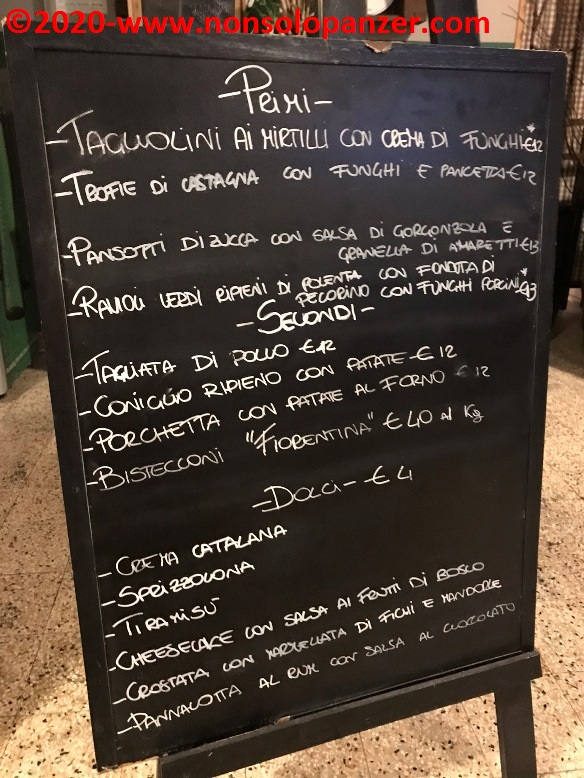 ©2020-www.nonsolopanzer.com
-Primi-
-Tagliolini ai mirtilli con crema di funghi*€12
-Trofie di castagna con funghi e pancetta-€12
-Pansotti di zucca con salsa di gorgonzola e
granella di amaretti€13
-Ravioli verdi ripieni di polenta con fonduta di
pecorino con funghi porcini*€13
-Secondi-
-Tagliata di pollo €12
-Coniglio ripieno con patate-€12
-Porchetta con patate al forno €12
-Bistecconi "Fiorentina" €40 al Kg
-Dolci-€4
-Crema catalana
-Sprizzolona
-Tiramisù
-Cheesecake con salsa ai frutti di bosco
-Crostata con marmellata di fichi e mandorle
-Pannacotta al rum con salsa al cioccolato